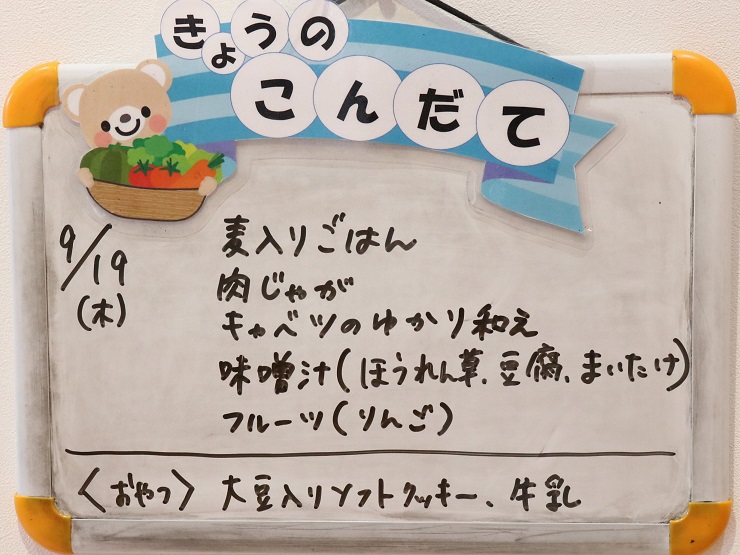 きょうの
こんだて
9/19
(木)
麦入りごはん
肉じゃが
キャベツのゆかり和え
味噌汁(ほうれん草、豆腐、まいたけ)
フルーツ(りんご)
〈おやつ〉 大豆入りソフトクッキー、牛乳